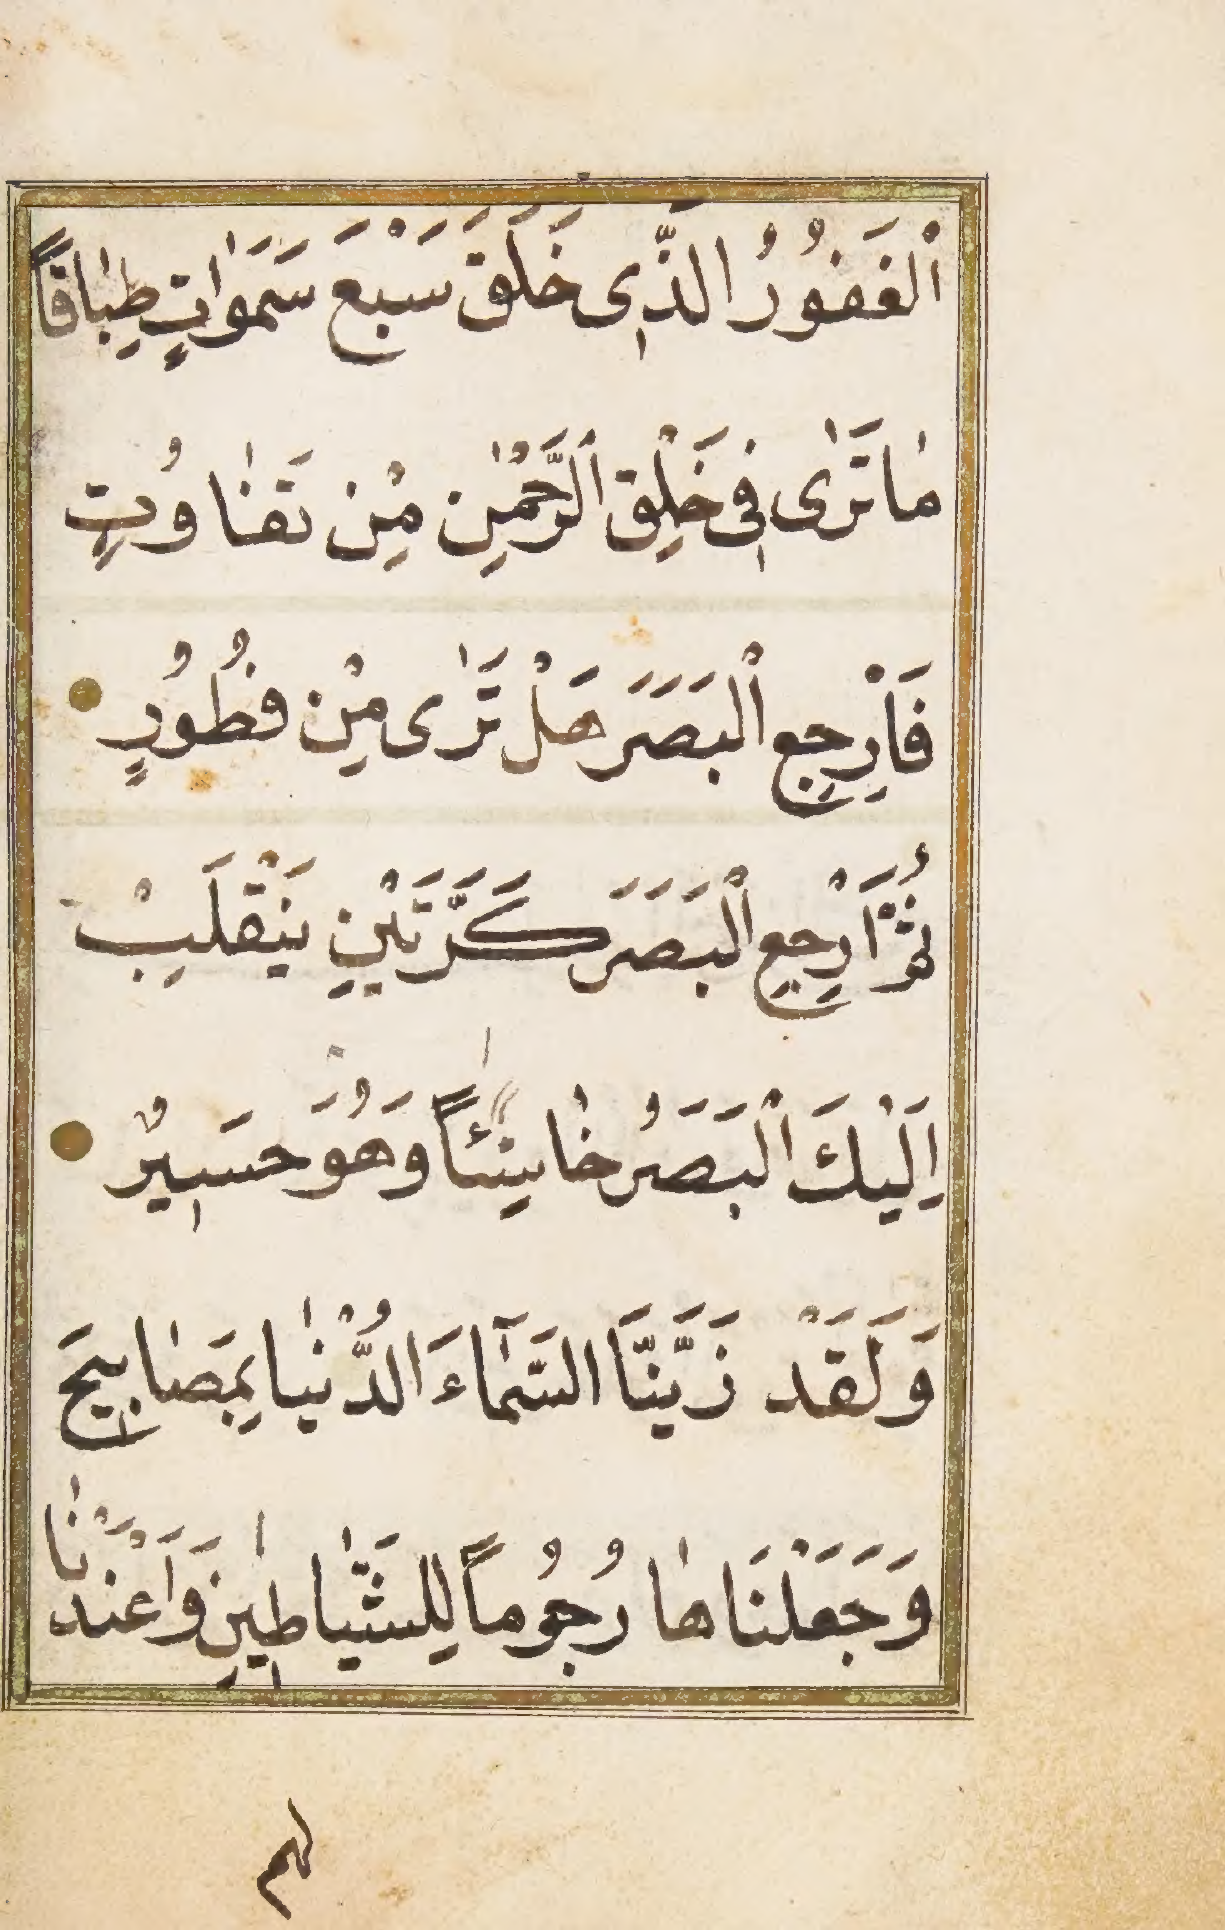 اَلْغَفُورُ الَّذِى خَلَقَ سَبْعَ سَمَوٰاتٍ طِبٰاقًا
مٰا تَرٰى فِى خَلْقِ الرَّحْمٰنِ مِنْ تَفٰاوُتٍ
فَارْجِعِ الْبَصَرَ هَلْ تَرٰى مِنْ فُطُورٍ
ثُمَّ ارْجِعِ الْبَصَرَ كَرَّتَيْنِ يَنْقَلِبْ
اِلَيْكَ الْبَصَرُ خٰاسِئًا وَهُوَ حَسِيرٌ
وَلَقَدْ زَيَّنَّا السَّمَآءَ الدُّنْيٰا بِمَصٰابِيحَ
وَجَعَلْنَاهٰا رُجُومًا لِلشَّيٰاطِينِ وَاَعْتَدْنٰا
لهم